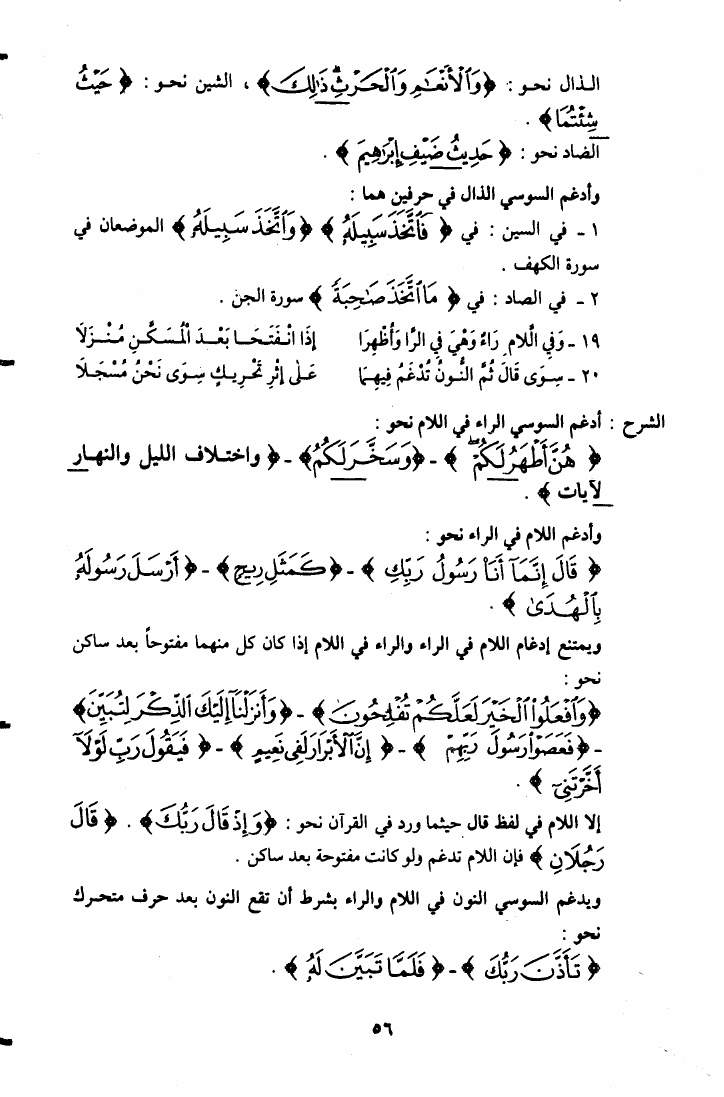 الذال نحو : ﴿ وَٱلْأَنْعَٰمِ وَٱلْحَرْثِۗ ذَٰلِكَ ﴾ ، الشين نحو : ﴿ حَيْثُ
شِئْتُمَا ﴾ .
الضاد نحو : ﴿ حَدِيثُ ضَيْفِ إِبْرَٰهِيمَ ﴾ .
وأدغم السوسي الذال في حرفين هما :
١ - في السين : في ﴿ فَٱتَّخَذَ سَبِيلَهُۥ ﴾ ﴿ وَٱتَّخَذَ سَبِيلَهُۥ ﴾ الموضعان في
سورة الكهف .
٢ - في الصاد : في ﴿ مَا ٱتَّخَذَ صَٰحِبَةً ﴾ سورة الجن .
١٩ - وَفِي الَّلامِ رَاءٌ وَهْيَ فِي الرَّا وَأُظْهِرَا إِذَا انْفَتَحَا بَعْدَ الْمُسَكَّنِ مُنْزَلَا
٢٠ - سِوَى قَالَ ثُمَّ النُّونُ تُدْغَمُ فِيهِمَا عَلَى إِثْرِ تَحْرِيكٍ سِوَى نَحْنُ مُسْجَلَا
الشرح : أدغم السوسي الراء في اللام نحو :
﴿ هُنَّ أَطْهَرُ لَكُمْۖ ﴾ - ﴿ وَسَخَّرَ لَكُمُ ﴾ - ﴿ واختلاف الليل والنهار
لآيات ﴾ .
وأدغم اللام في الراء نحو :
﴿ قَالَ إِنَّمَآ أَنَا۠ رَسُولُ رَبِّكِ ﴾ - ﴿ كَمَثَلِ رِيحٍ ﴾ - ﴿ أَرْسَلَ رَسُولَهُۥ
بِٱلْهُدَىٰ ﴾ .
ويمتنع إدغام اللام في الراء والراء في اللام إذا كان كل منهما مفتوحاً بعد ساكن
نحو :
﴿ وَٱفْعَلُوا۟ ٱلْخَيْرَ لَعَلَّكُمْ تُفْلِحُونَ ﴾ - ﴿ وَأَنزَلْنَآ إِلَيْكَ ٱلذِّكْرَ لِتُبَيِّنَ ﴾
- ﴿ فَعَصَوْا۟ رَسُولَ رَبِّهِمْ ﴾ - ﴿ إِنَّ ٱلْأَبْرَارَ لَفِى نَعِيمٍ ﴾ - ﴿ فَيَقُولَ رَبِّ لَوْلَآ
أَخَّرْتَنِىٓ ﴾ .
إلا اللام في لفظ قال حيثما ورد في القرآن نحو : ﴿ وَإِذْ قَالَ رَبُّكَ ﴾ . ﴿ قَالَ
رَجُلَانِ ﴾ فإن اللام تدغم ولو كانت مفتوحة بعد ساكن .
ويدغم السوسي النون في اللام والراء بشرط أن تقع النون بعد حرف متحرك
نحو :
﴿ تَأَذَّنَ رَبُّكَ ﴾ - ﴿ فَلَمَّا تَبَيَّنَ لَهُۥ ﴾ .
٥٦